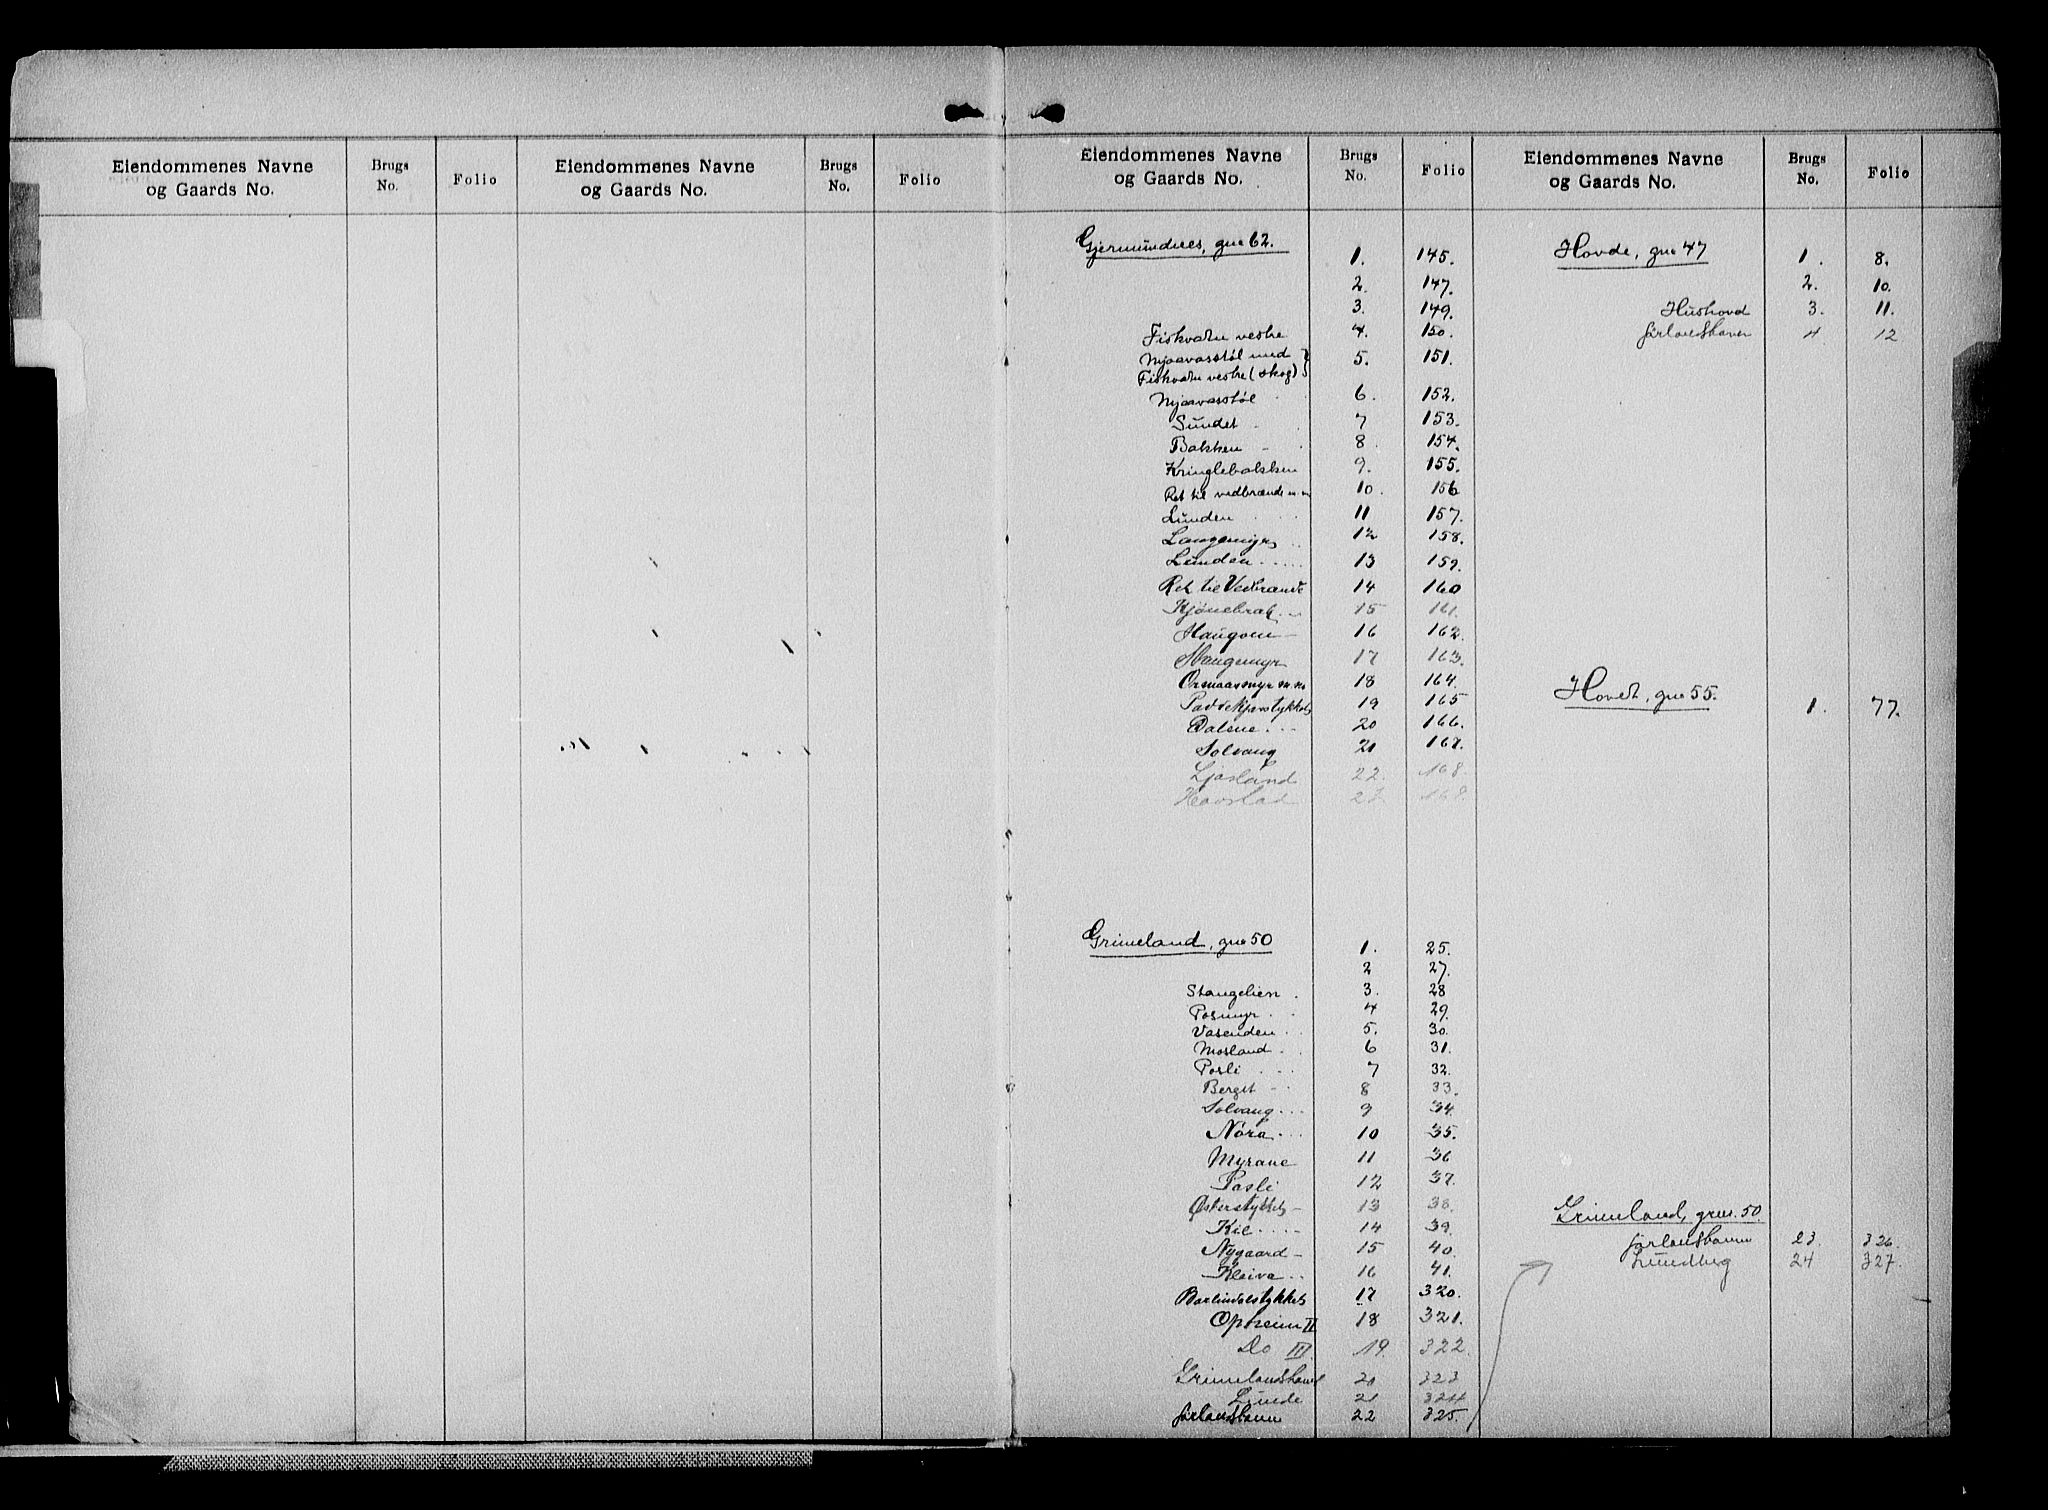 Eiendommenes Navne og Gaards No. Brugs No. Folio Eiendommenes Navne og Gaards No. Brugs No. Folio
Eiendommenes Navne og Gaards No. Brugs No. Folio Eiendommenes Navne og Gaards No. Brugs No. Folio
Gjermundnes, gno 62. 1. 145.
2. 147.
3. 149.
Fiskvatn vestre 4. 150.
Njaavasstøl med
Fiskvatn vestre (skog) 5. 151.
Njaavasstøl 6. 152.
Sundet 7 153.
Bakken 8. 154.
Kringlebakken 9. 155.
Ret til vedbrænde m. m 10. 156
Lunden 11 157.
Langemyr 12 158.
Lunden 13 159.
Ret til Vedbrænde 14 160
15 161.
Haugom 16 162.
Stangemyr 17 163.
Ormaasmyr m.m 18 164.
19 165
Dalene 20 166.
Solvang 21 167.
Ljosland 22. 168.
Havstad 23 169.
Grimeland, gno 50 1. 25.
2 27.
Stangelien 3. 28
Posmyr 4 29.
Vasenden 5. 30.
Mosland 6 31.
Posli 7 32.
Berget 8 33.
Solvang 9 34.
Nøra 10 35.
Myrane 11 36
Posli 12 37.
Østerstykket 13 38.
Kil 14 39.
Nygaard 15 40.
Kleiva 16 41.
Barlindalstykket 17 320.
Opheim II 18 321.
Do III 19. 322.
20 323
Lunde 21 324
22 325.
Hovde, gno 47 1. 8.
2. 10.
Hushovd 3. 11.
4 12
Hovet, gno 55. 1. 77.
Grimeland, gno. 50.
23. 326.
Lundberg 24 327.